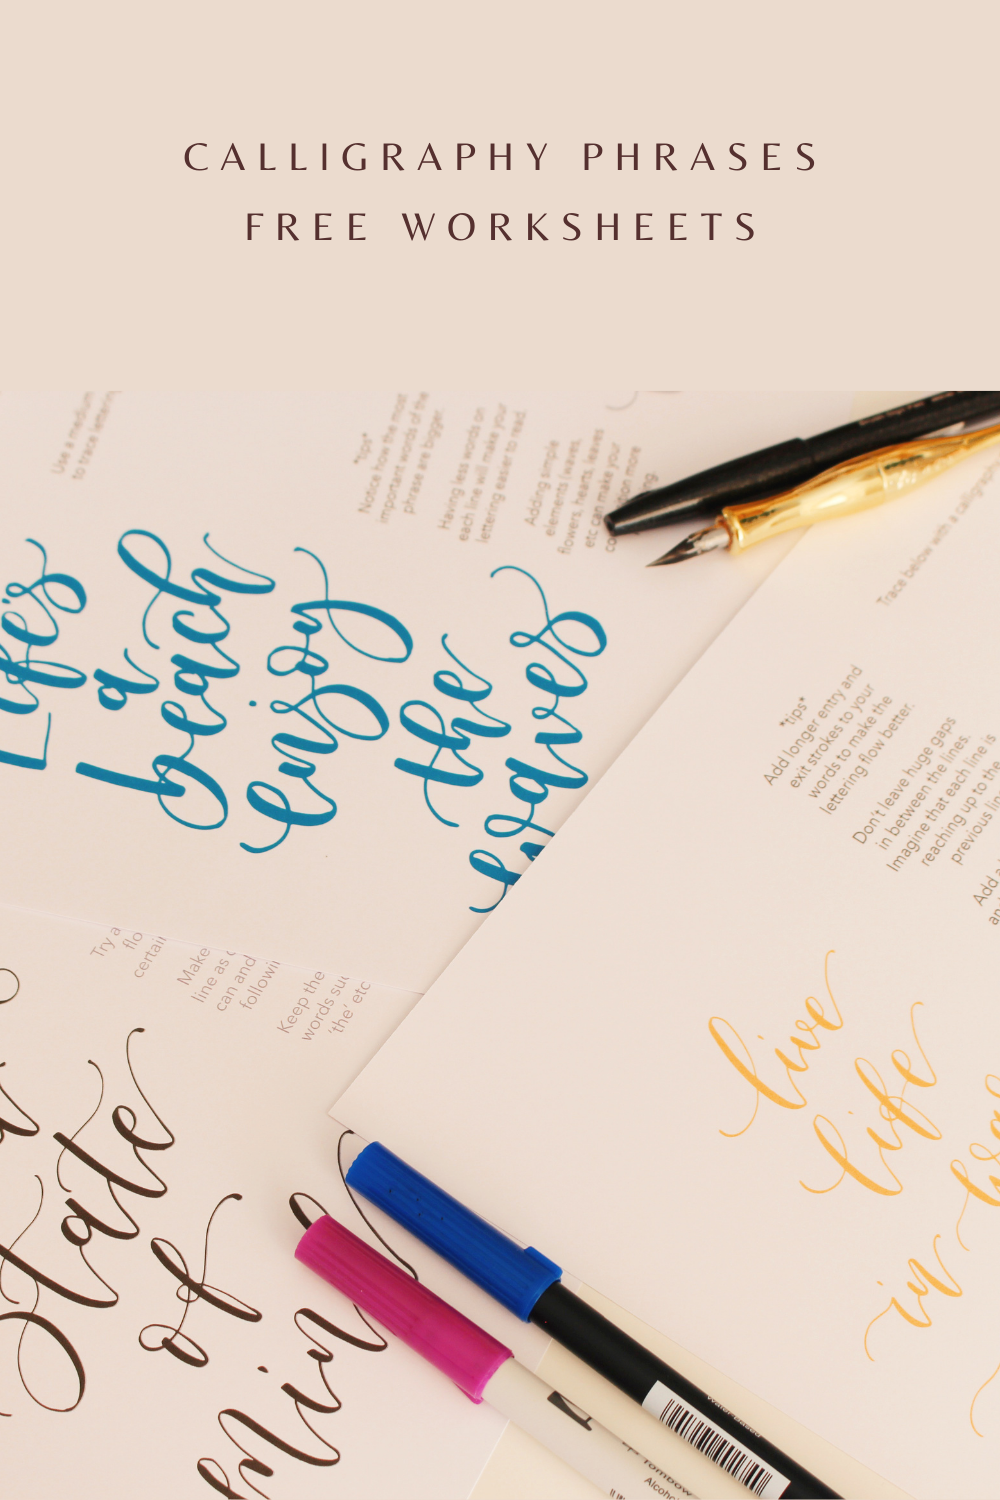 CALLIGRAPHY PHRASES
FREE WORKSHEETS
Use a medium
to trace lettering
*tips*
Notice how the most
important words of the
phrase are bigger.
Having less words on
each line will make your
lettering easier to read.
Adding simple
elements leaves,
flowers, hearts, leaves
etc can make your
more
Life's
a
beach
enjoy
the
waves
Trace below with a calligraphy
*tips*
Add longer entry and
exit strokes to your
words to make the
lettering flow better.
Don't leave huge gaps
in between the lines.
Imagine that each line is
reaching up to the
previous
Add a
live
life
in
Try a
Make
line as
can and
Keep the
words
'the' etc
State
of
Water-Based
Tombow